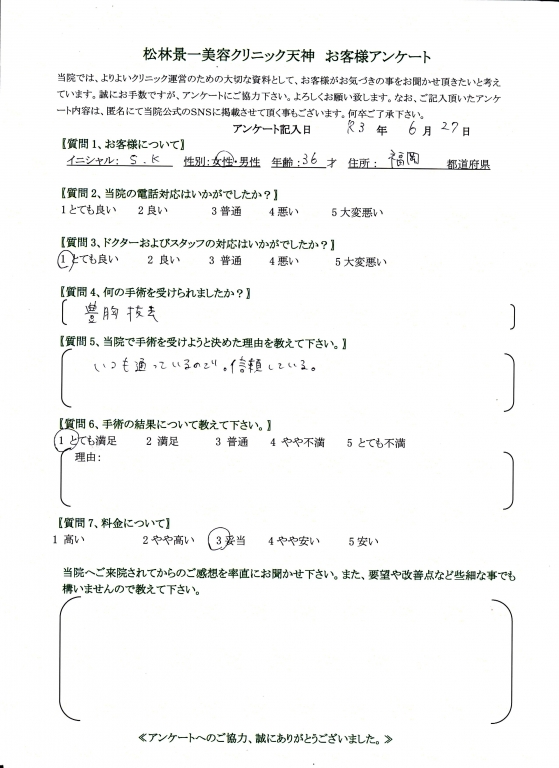 松林景一美容クリニック天神 お客様アンケート
当院では、よりよいクリニック運営のための大切な資料として、お客様がお気づきの事をお聞かせ頂きたいと考え
ています。誠にお手数ですが、アンケートにご協力下さい。よろしくお願い致します。なお、ご記入頂いたアンケ
ート内容は、匿名にて当院公式のSNSに掲載させて頂く事もございます。何卒ご了承下さい。
アンケート記入日 R3 年 6 月 27 日
【質問1、お客様について】
イニシャル: S.K 性別:女性・男性 年齢:36 才 住所: 福岡 都道府県
【質問2、当院の電話対応はいかがでしたか?】
1とても良い 2 良い 3 普通 4 悪い 5 大変悪い
【質問3、ドクターおよびスタッフの対応はいかがでしたか?】
1 とても良い 2 良い 3 普通 4 悪い 5 大変悪い
【質問4、何の手術を受けられましたか?】
豊胸 抜去
【質問5、当院で手術を受けようと決めた理由を教えて下さい。】
いつも通っているので。信頼している。
【質問6、手術の結果について教えて下さい。】
1 とても満足 2 満足 3 普通 4 やや不満 5 とても不満
理由:
【質問7、料金について】
1 高い 2 やや高い 3 妥当 4 やや安い 5 安い
当院へご来院されてからのご感想を率直にお聞かせ下さい。また、要望や改善点など些細な事でも
構いませんので教えて下さい。
≪アンケートへのご協力、誠にありがとうございました。≫